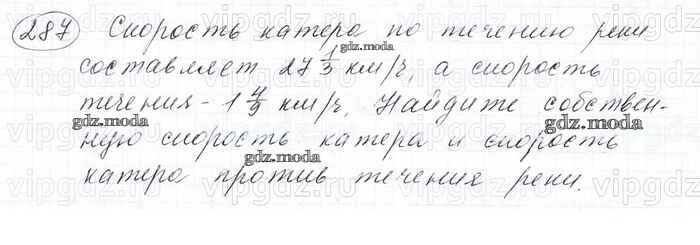 287 Скорость катера по течению реки
составляет 27 1/3 км/ч, а скорость
течения - 1 4/9 км/ч. Найдите собствен-
ную скорость катера и скорость
катера против течения реки.
gdz.moda
gdz.moda
gdz.moda
gdz.moda
gdz.moda